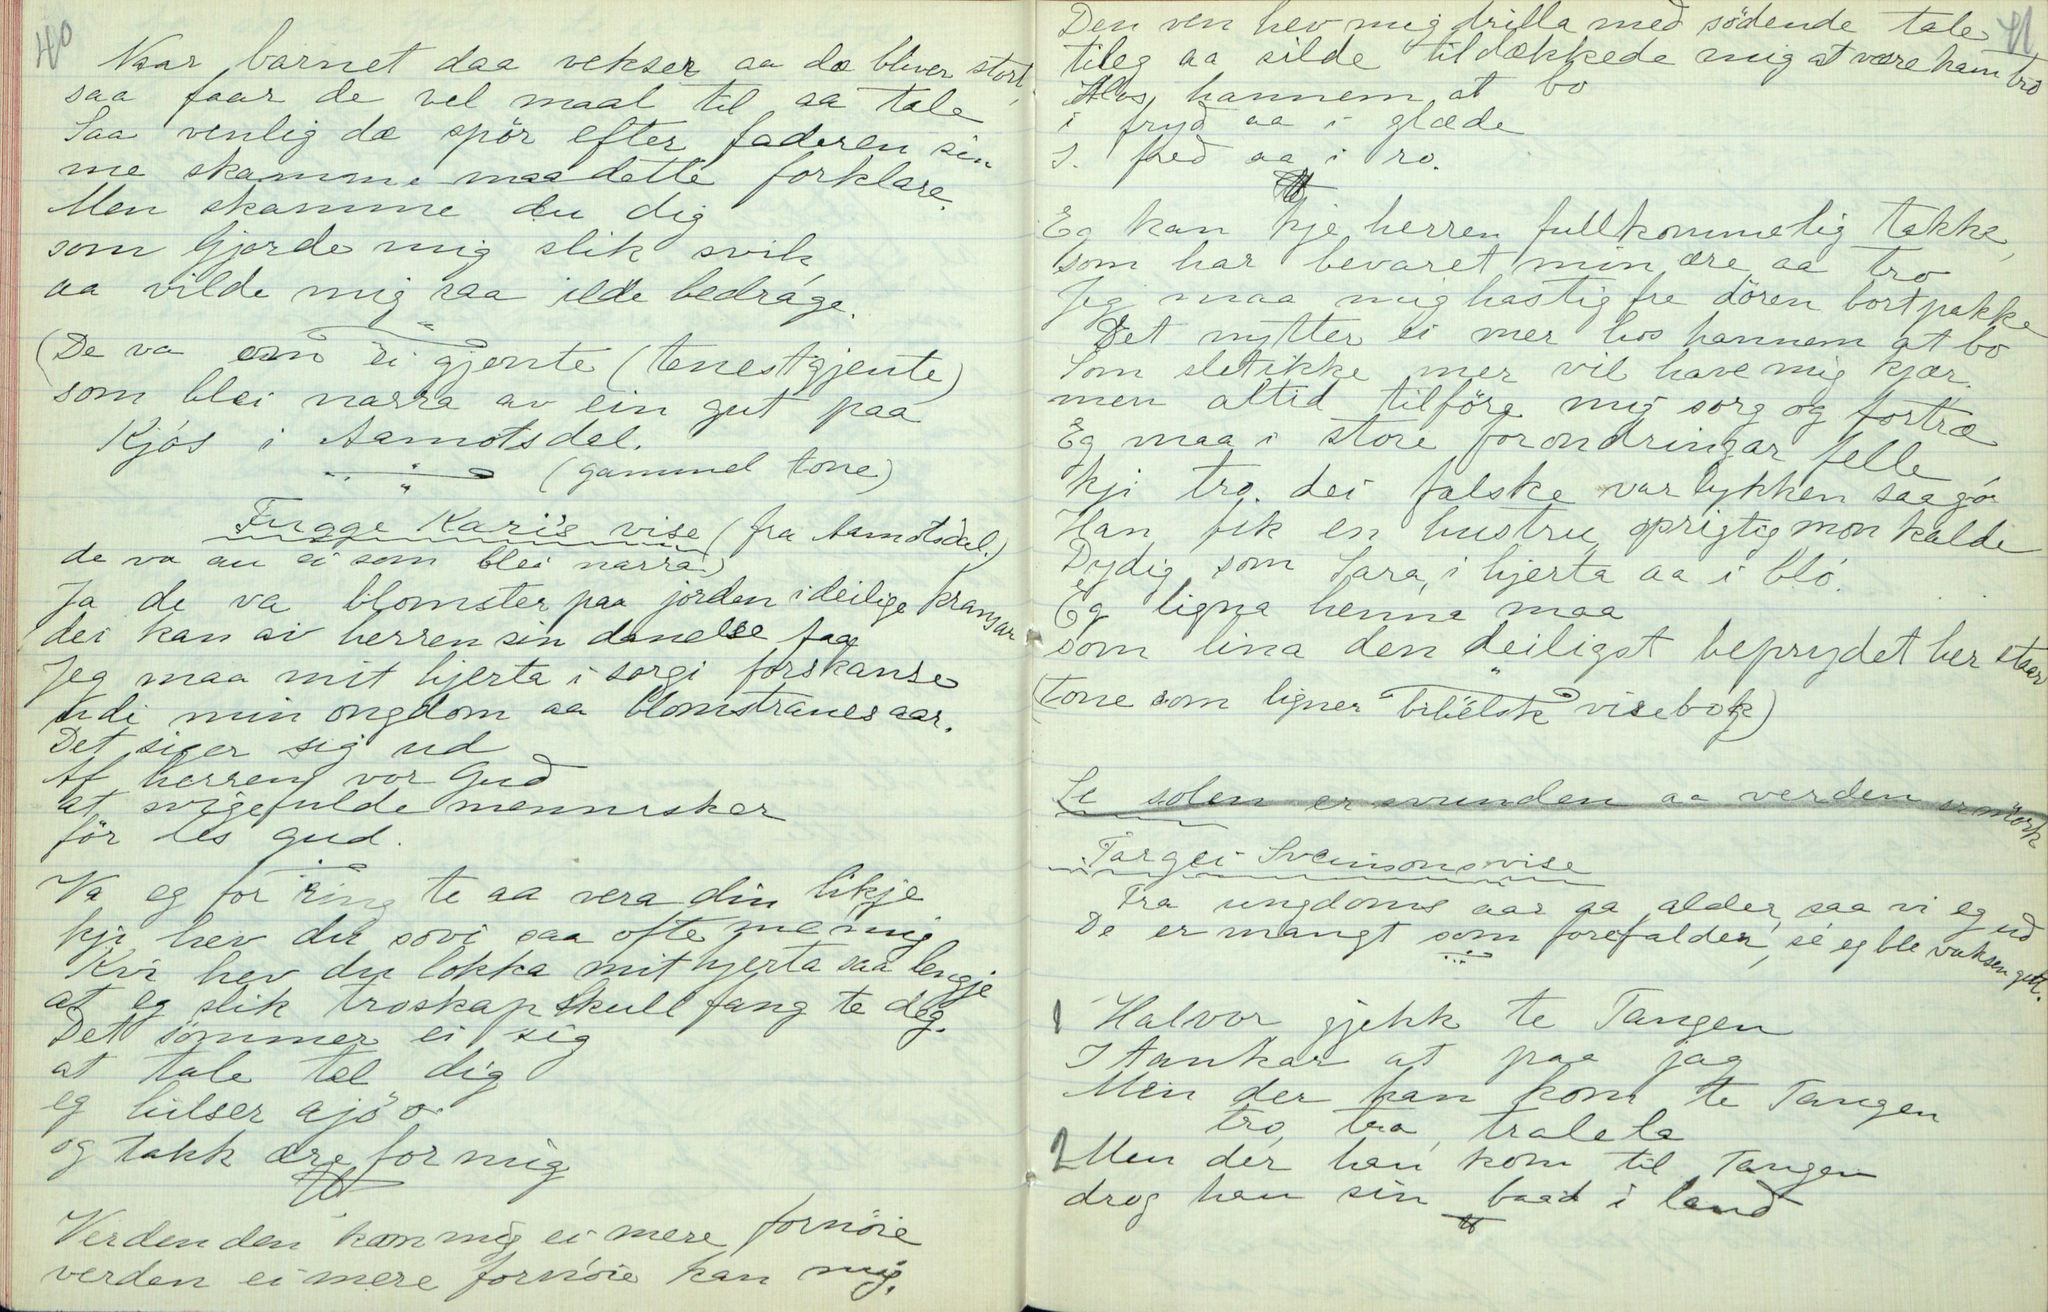 40
Naar barnet daa vekser aa dæ bliver stort,
saa faar de vel maal til aa tale
Saa venlig dæ spör efter faderen sin
me skamme maa dette forklare.
Men skamme du dig
som Gjorde mig slik svik
aa vilde mig saa ilde bedrage.
(De va ei gjente (tenestgjente)
som blei narra av ein gut paa
Kjos i Aamotsdal.
(gammel tone)
Fugge Karis vise (fra Aamotsdal.)
de va au ei som blei narra)
Ja de va blomster paa jorden i deilige kransar
dei kan av herren sin danelse faa
Jeg maa mit hjerta i sorgi forskanse
udi min ongdom aa blomstranes aar.
Det siger sig ud
Af herren vor Gud
at svigefulde mennesker
för les gud.
Va eg for ring te aa vera din likje
kji hev du sovi saa ofte me mig
Kvi hev du lokka mit hjerta saa lengje
at eg slik troskap skull fang te deg.
Det sömmer ei sig
at tale tel dig
eg hilser ajö
og takk ære for mig
Verden den kan mig ei mere fornöie
verden ei mere fornöie kan mig.
41
Den ven hev mig drilla med södende tale
tileg aa silde tildækkede mig at være ham tro
Hos hannem at bo
i fryd aa i glæde
I fred aa i ro.
Eg kan kje herren fullkommelig takke,
som har bevaret min ære aa tro
Jeg maa mig hastig fre dören bortpakke
Det nytter ei mer hos hannem at bo
Som slet ikke mer vil have mig kjær.
men altid tilföre mig sorg og fortræ
Eg maa i store forondringar felle
kji tro dei falske var lykken saa go
Han fik en hustru oprigtig mon kalde
Dydig som Sara, i hjerta aa i blo.
Eg ligna henne maa
som lina den deiligst beprydet her staar
(tone som ligner bibelsk visebok)
Se solen er svunden aa verden er mörk
Targei Sveinsons vise
Fra ungdoms aar aa alder, saa vi eg ud
De er mangt som forefalder, si eg ble vaksen gut.
1 Halvor gjekk te Tangen
I tankar at paa jag
Men der han kom te Tangen
tro, tra, tralala
2 Men der han kom til Tangen
drog han sin baad i land